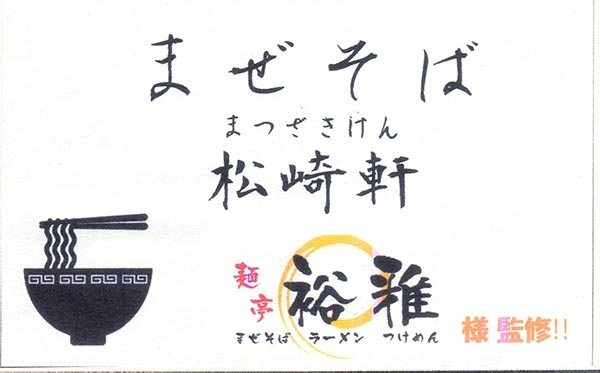 まぜそば
まつざきけん
松崎軒
麺亭 裕雅
まぜそば ラーメン つけめん
様監修!!